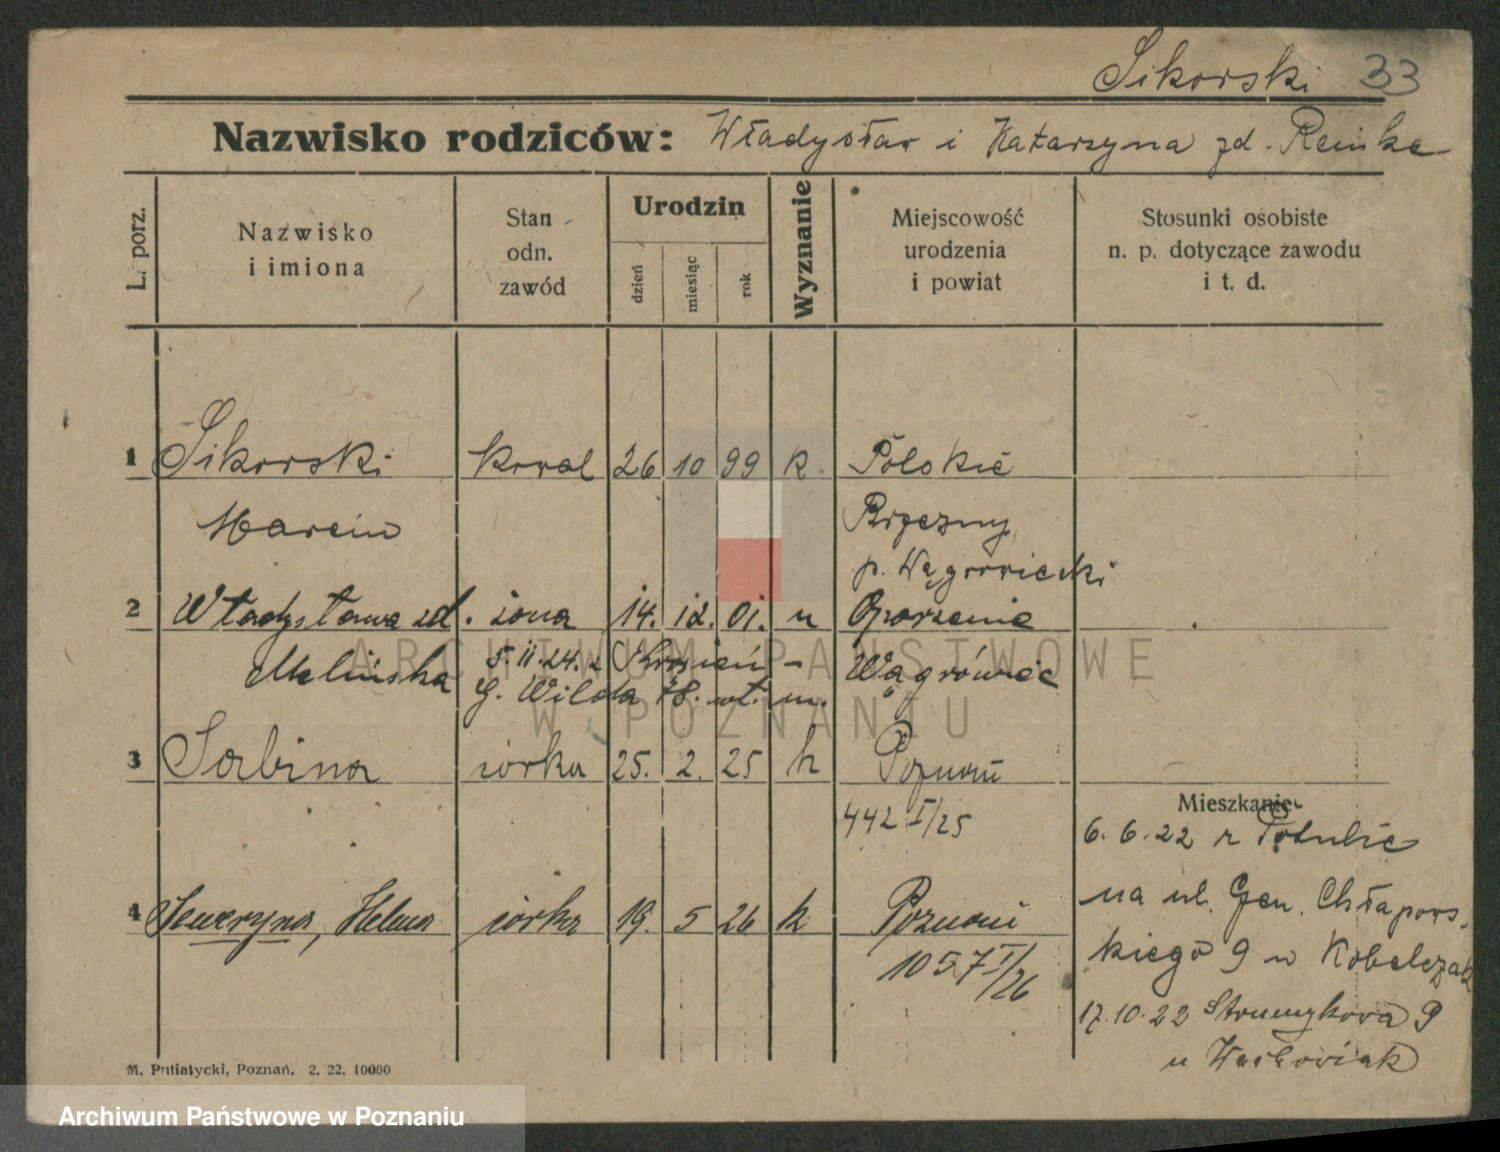 Sikorski 33
Nazwisko rodziców: Władysław i Katarzyna zd. Reinke
L. porz.
Nazwisko i imiona
Stan odn. zawód
Urodzin
dzień
miesiąc
rok
Wyznanie
Miejscowość urodzenia i powiat
Stosunki osobiste n. p. dotyczące zawodu i t. d.
1 Sikorski kowal 26 10 99 k Polskie
Marcin Brzezny
p. Wągrowiecki
2 Władysława zd. żona 14. 12. 01. " Oporzenie
Melińska 5.II.24. Wągrówiec
G. Wilda 78. wt. m.
3 Sabina córka 25. 2. 25 k Poznań
442 I/25
Mieszkanie
6.6.22 z Potulic
na ul. Gen. Chłapows-
kiego 9 u Kobelczak
17.10.22 Strumykowa 9
u Wachowiak
4 Seweryna, Helena córka 19. 5 26 k Poznań
1057 I/26
M. Putiatycki, Poznań. 2. 22. 10000
ARCHIWUM PAŃSTWOWE
W POZNANIU
Archiwum Państwowe w Poznaniu